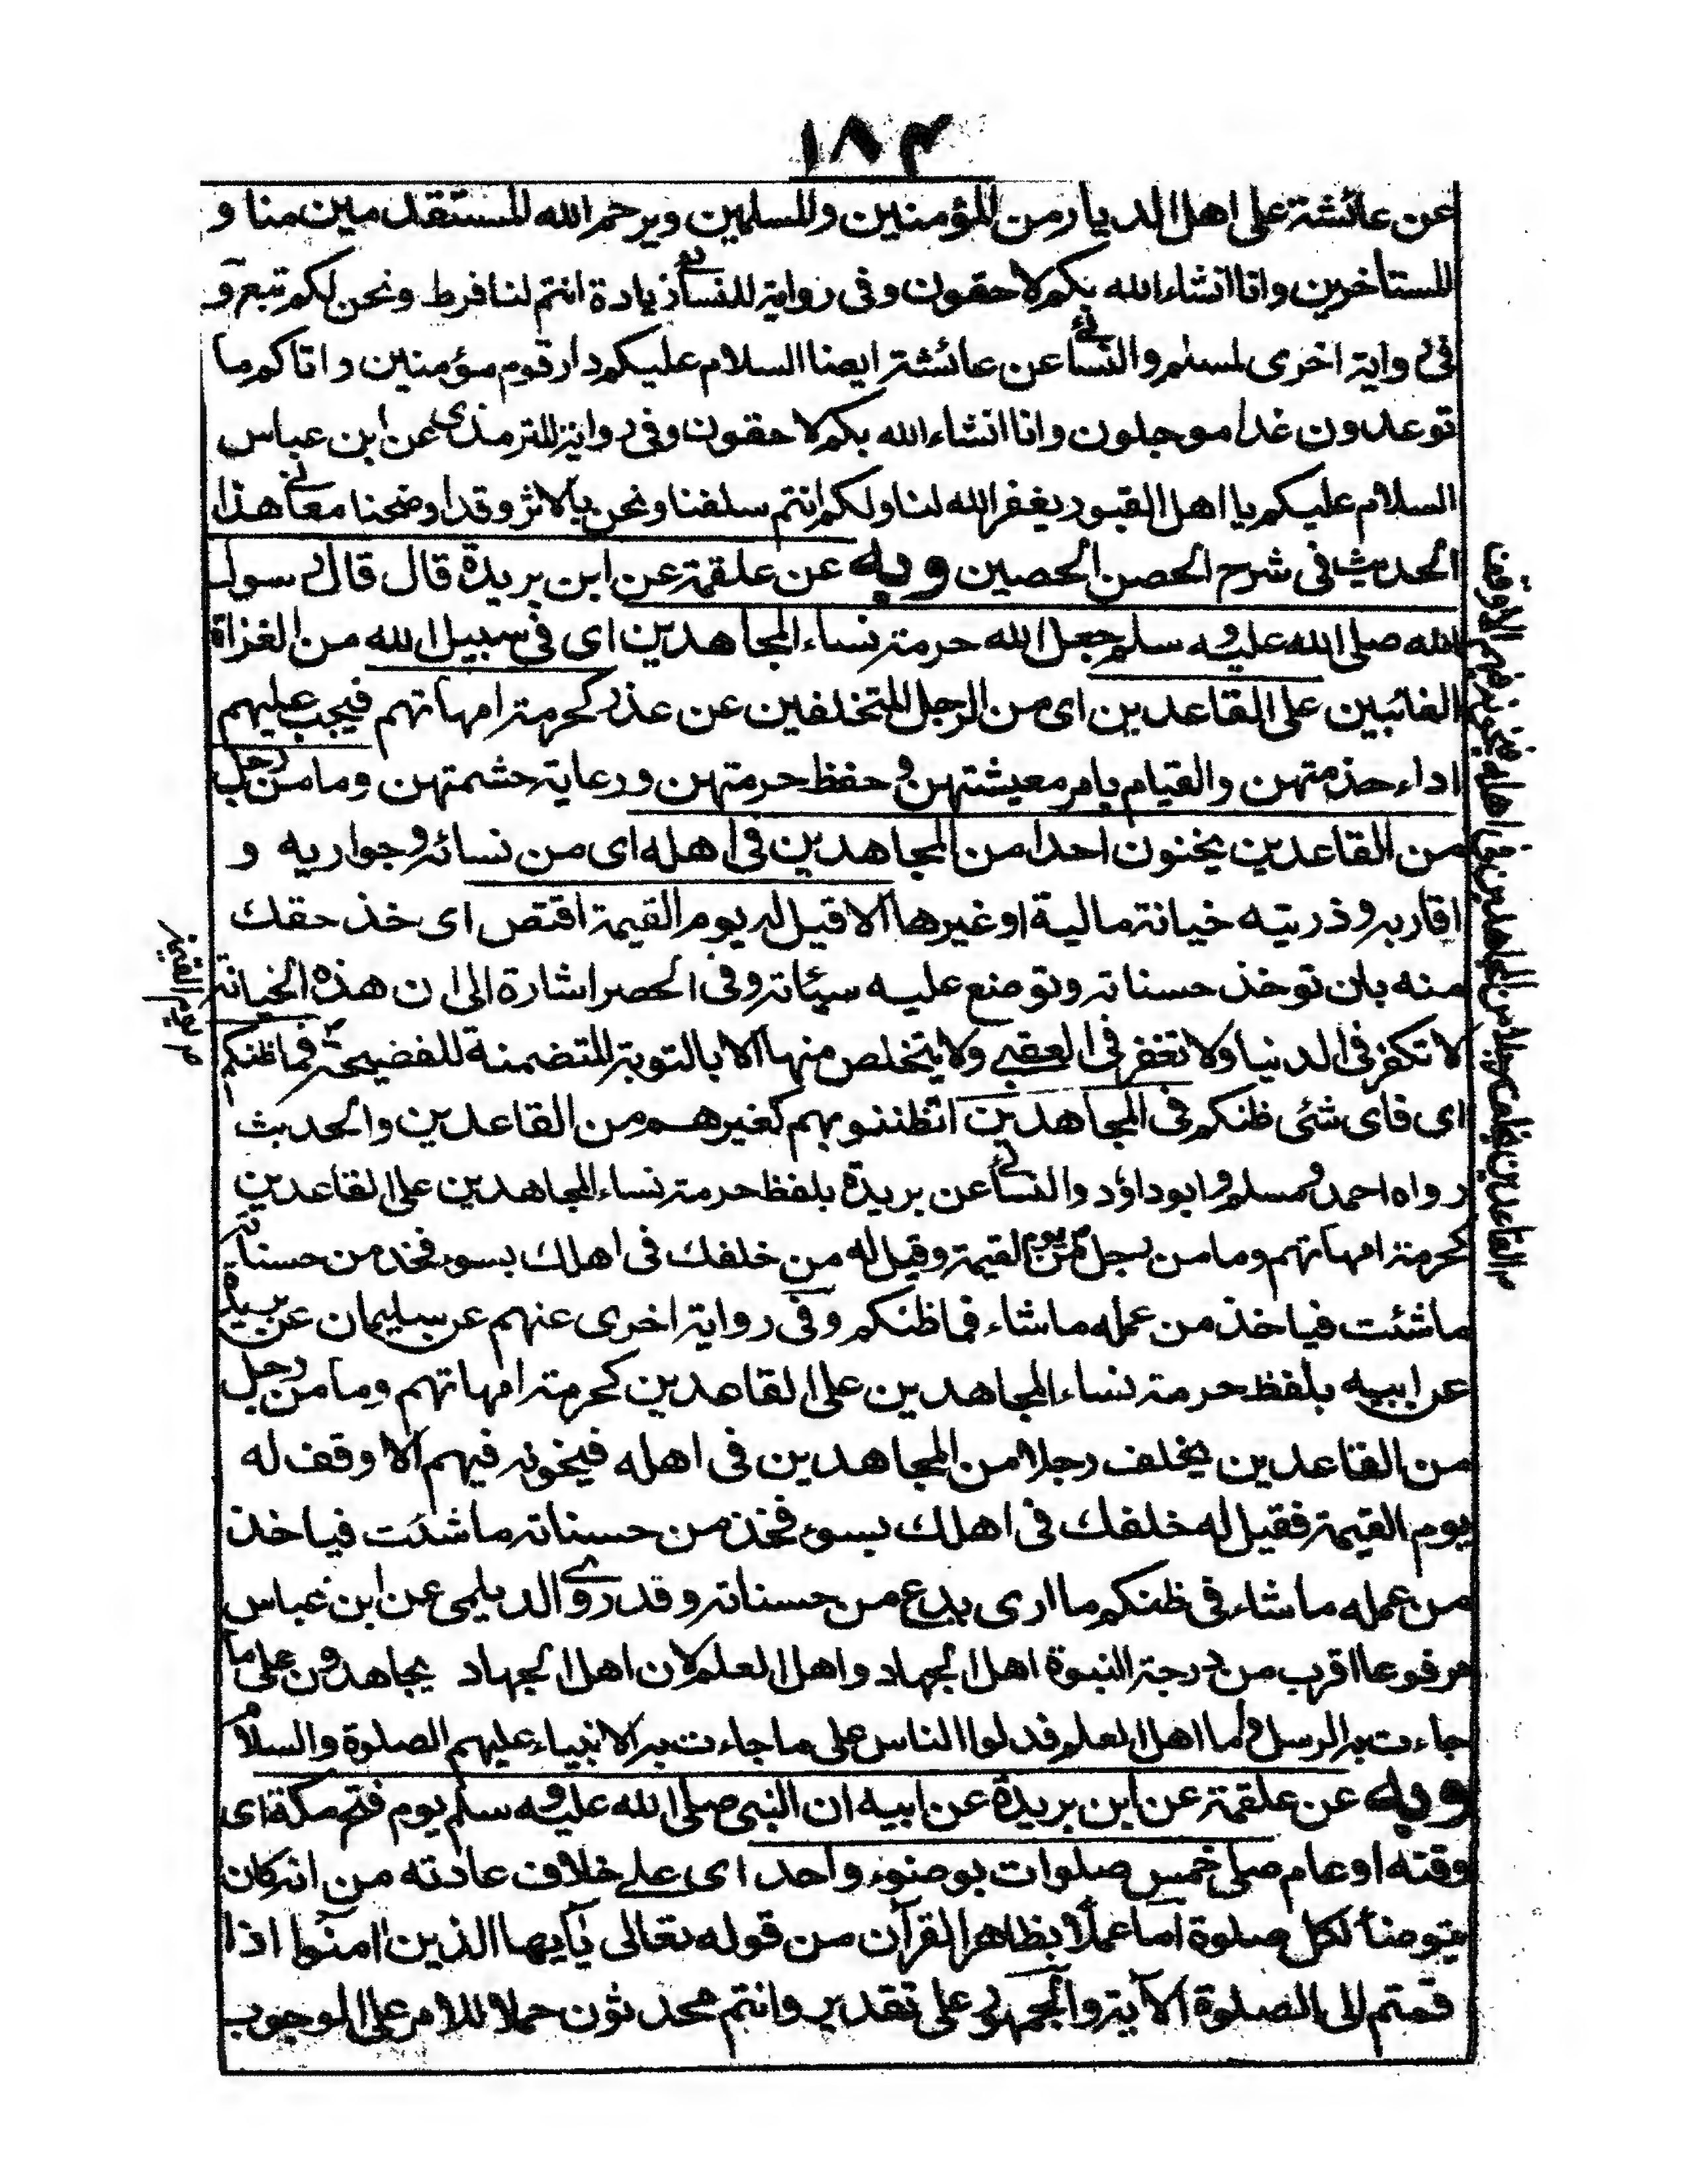 ١٨٤
عن عائشة على اهل الديار من المؤمنين والمسلمين ويرحم الله المستقدمين منا و
المستأخرين وانا انشاء الله بكم لاحقون وفى رواية للنسائى زيادة انتم لنا فرط ونحن لكم تبع و
فى رواية اخرى لمسلم والنسائى عن عائشة ايضا السلام عليكم دار قوم مؤمنين واتاكم ما
توعدون غدا موجلون وانا انشاء الله بكم لاحقون وفى رواية للترمذى عن ابن عباس
السلام عليكم يا اهل القبور يغفر الله لنا ولكم انتم سلفنا ونحن بالاثر وقد اوضحنا معانى هذا
الحديث فى شرح الحصن الحصين وبه عن علقمة عن ابن بريدة قال قال رسول
الله صلى الله عليه وسلم جعل الله حرمة نساء المجاهدين اى فى سبيل الله من الغزاة
الغائبين على القاعدين اى من الرجل المتخلفين عن عذر كحرمة امهاتهم فيجب عليهم
اداء خذمتهن والقيام بامر معيشتهن و حفظ حرمتهن ورعاية حشمتهن وما من رجل
من القاعدين يخنون احدا من المجاهدين فى اهله اى من نسائه وجواريه و
اقاربه وذريته خيانة مالية او غيرها الا قيل له يوم القيمة اقتص اى خذ حقك
منه بان توخذ حسناته وتوضع عليه سيئاته وفى الحصر اشارة الى ان هذه الخيانة
لا تكفر فى الدنيا ولا تغفر فى العقبى ولا يتخلص منها الا بالتوبة المتضمنة للفضيحة فما ظنكم
اى فاى شئى ظنكم فى المجاهدين اتظننو بهم كغيرهم من القاعدين والحديث
رواه احمد ومسلم وابو داؤد والنسائى عن بريدة بلفظ حرمة نساء المجاهدين على القاعدين
كحرمة امهاتهم وما من رجل يوم القيمة وقيل له من خلفك فى اهلك بسوء فخذ من حسناته
ماشئت فياخذ من عمله ماشاء فما ظنكم وفى رواية اخرى عنهم عن سليمان عن بريدة
عن ابيه بلفظ حرمة نساء المجاهدين على القاعدين كحرمة امهاتهم وما من رجل
من القاعدين يخلف رجلا من المجاهدين فى اهله فيخونه فيهم الا وقف له
يوم القيمة فقيل له خلفك فى اهلك بسوء فخذ من حسناته ماشئت فياخذ
من عمله ماشاء فى ظنكم ما ارى يدع من حسناته وقد روى الديلمى عن ابن عباس
مرفوعا اقرب من درجة النبوة اهل الجهاد واهل العلم لان اهل الجهاد يجاهدون على ما
جاءت به الرسل واما اهل العلم فدلوا الناس على ما جاءت به الانبياء عليهم الصلوة والسلام
وبه عن علقمة عن ابن بريدة عن ابيه ان النبى صلى الله عليه وسلم يوم فتح مكة اى
وقته او عام صلى خمس صلوات بوضوء واحد اى على خلاف عادته من انه كان
يتوضأ لكل صلوة اما عملا بظاهر القرآن من قوله تعالى يآيها الذين امنوا اذا
قمتم الى الصلوة الآية والجمهور على تقدير وانتم محدثون حملا للامر على الوجوب
من القاعدين يخلف رجلا من المجاهدين فى اهله فيخونه فيهم الا وقف
له يوم القيمة